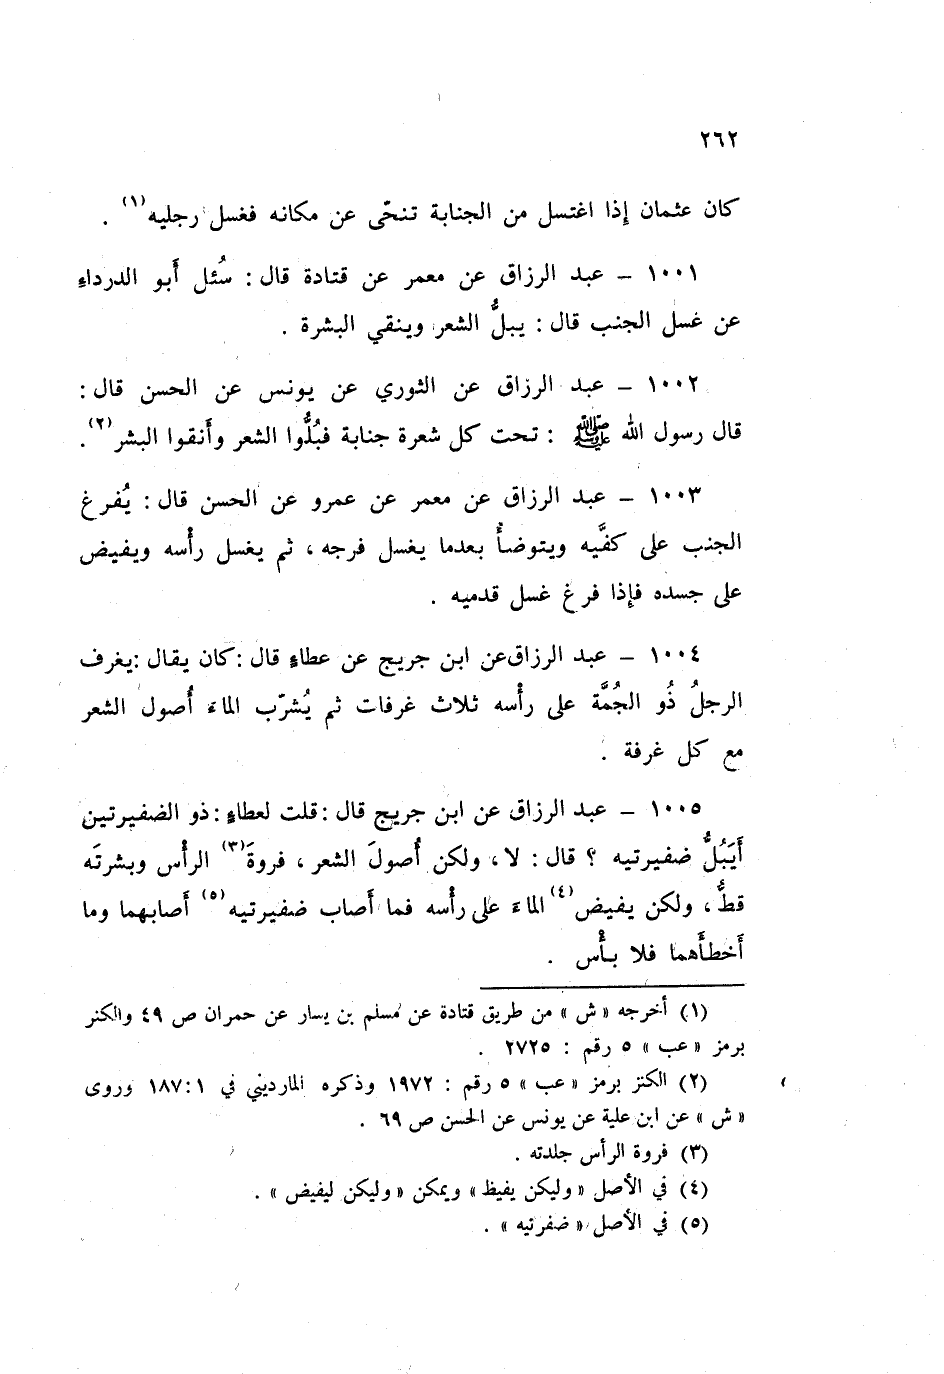 ٢٦٢
كان عثمان إذا اغتسل من الجنابة تنحّى عن مكانه فغسل رجليه (١) .
١٠٠١ – عبد الرزاق عن معمر عن قتادة قال : سُئل أَبو الدرداءِ
عن غسل الجنب قال : يبلُّ الشعر وينقي البشرة .
١٠٠٢ – عبد الرزاق عن الثوري عن يونس عن الحسن قال :
قال رسول الله ﷺ : تحت كل شعرة جنابة فبُلُّوا الشعر وأَنقوا البشر (٢) .
١٠٠٣ – عبد الرزاق عن معمر عن عمرو عن الحسن قال : يُفرغ
الجنب على كفَّيه ويتوضأُ بعدما يغسل فرجه ، ثم يغسل رأْسه ويفيض
على جسده فإذا فرغ غسل قدميه .
١٠٠٤ – عبد الرزاق عن ابن جريج عن عطاءٍ قال : كان يقال : يغرف
الرجلُ ذُو الجُمَّة على رأْسه ثلاث غرفات ثم يُشرّب الماءَ أُصول الشعر
مع كل غرفة .
١٠٠٥ – عبد الرزاق عن ابن جريج قال : قلت لعطاءٍ : ذو الضفيرتين
أَيَبُلُّ ضفيرتيه ؟ قال : لا ، ولكن أُصولَ الشعر ، فروةَ (٣) الرأْس وبشرتَه
قطُّ ، ولكن يفيض (٤) الماءَ على رأْسه فما أَصاب ضفيرتيه (٥) أَصابهما وما
أَخطأَهما فلا بأْس .
(١) أخرجه « ش » من طريق قتادة عن مسلم بن يسار عن حمران ص ٤٩ والكنز
برمز « عب » ٥ رقم : ٢٧٢٥ .
(٢) الكنز برمز « عب » ٥ رقم : ١٩٧٢ وذكره المارديني في ١ : ١٨٧ وروى
« ش » عن ابن علية عن يونس عن الحسن ص ٦٩ .
(٣) فروة الرأس جلدته .
(٤) في الأصل « وليكن يفيظ » ويمكن « وليكن ليفيض » .
(٥) في الأصل « ضفرتيه » .